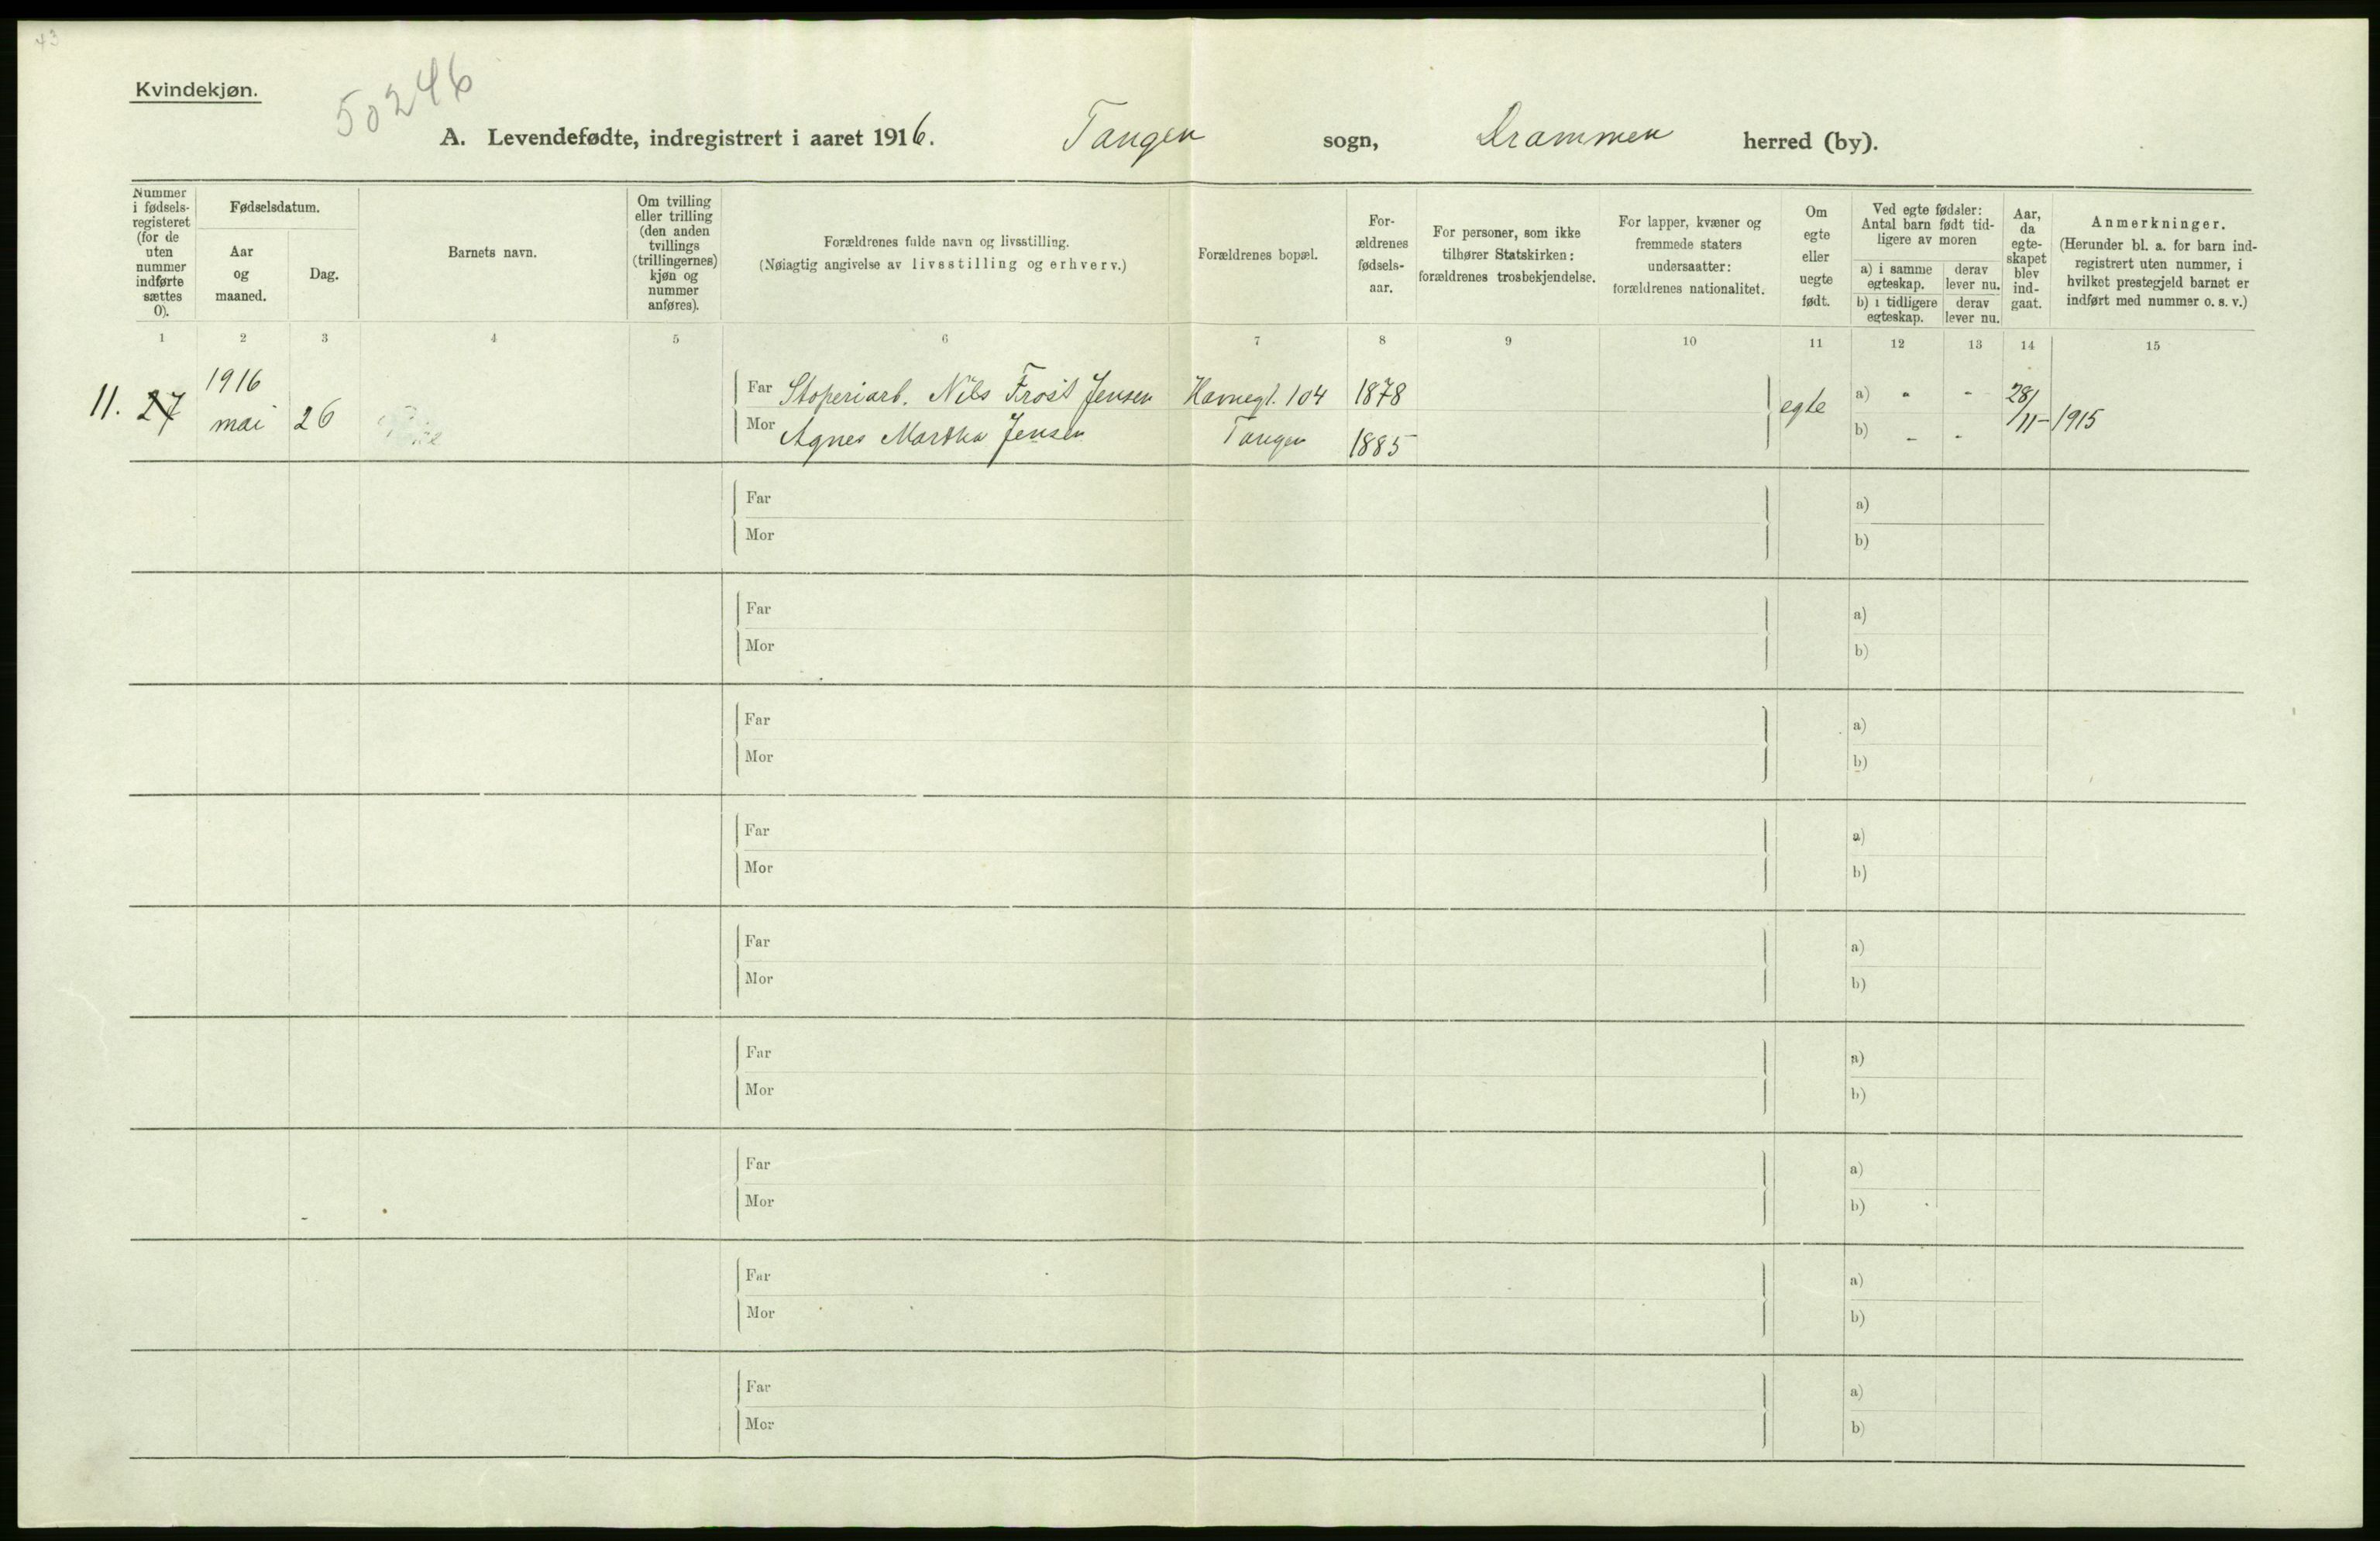 43
Kvindekjøn.
50246
A. Levendefødte, indregistrert i aaret 1916. Tangen sogn, Drammen herred (by).
Nummer i fødsels-registeret (for de uten nummer indførte sættes 0).
Fødselsdatum.
Aar og maaned.
Dag.
Barnets navn.
Om tvilling eller trilling (den anden tvillings (trillingernes) kjøn og nummer anføres).
Forældrenes fulde navn og livsstilling.
(Nøiagtig angivelse av livsstilling og erhverv.)
Forældrenes bopæl.
For-ældrenes fødsels-aar.
For personer, som ikke tilhører Statskirken: forældrenes trosbekjendelse.
For lapper, kvæner og fremmede staters undersaatter: forældrenes nationalitet.
Om egte eller uegte født.
Ved egte fødsler: Antal barn født tid-ligere av moren
a) i samme egteskap.
derav lever nu.
b) i tidligere egteskap.
derav lever nu.
Aar, da egte-skapet blev ind-gaat.
Anmerkninger.
(Herunder bl. a. for barn ind-registrert uten nummer, i hvilket prestegjeld barnet er indført med nummer o. s. v.)
1 2 3 4 5 6 7 8 9 10 11 12 13 14 15
11. 27 1916 mai 26 Pike
Far Stoperiarb. Nils Frosit Jensen Havnegt. 104 1878 egte a) " - 28/11-1915
Mor Agnes Martha Jensen Tangen 1885 b) - -
Far a)
Mor b)
Far a)
Mor b)
Far a)
Mor b)
Far a)
Mor b)
Far a)
Mor b)
Far a)
Mor b)
Far a)
Mor b)
Far a)
Mor b)
Far a)
Mor b)